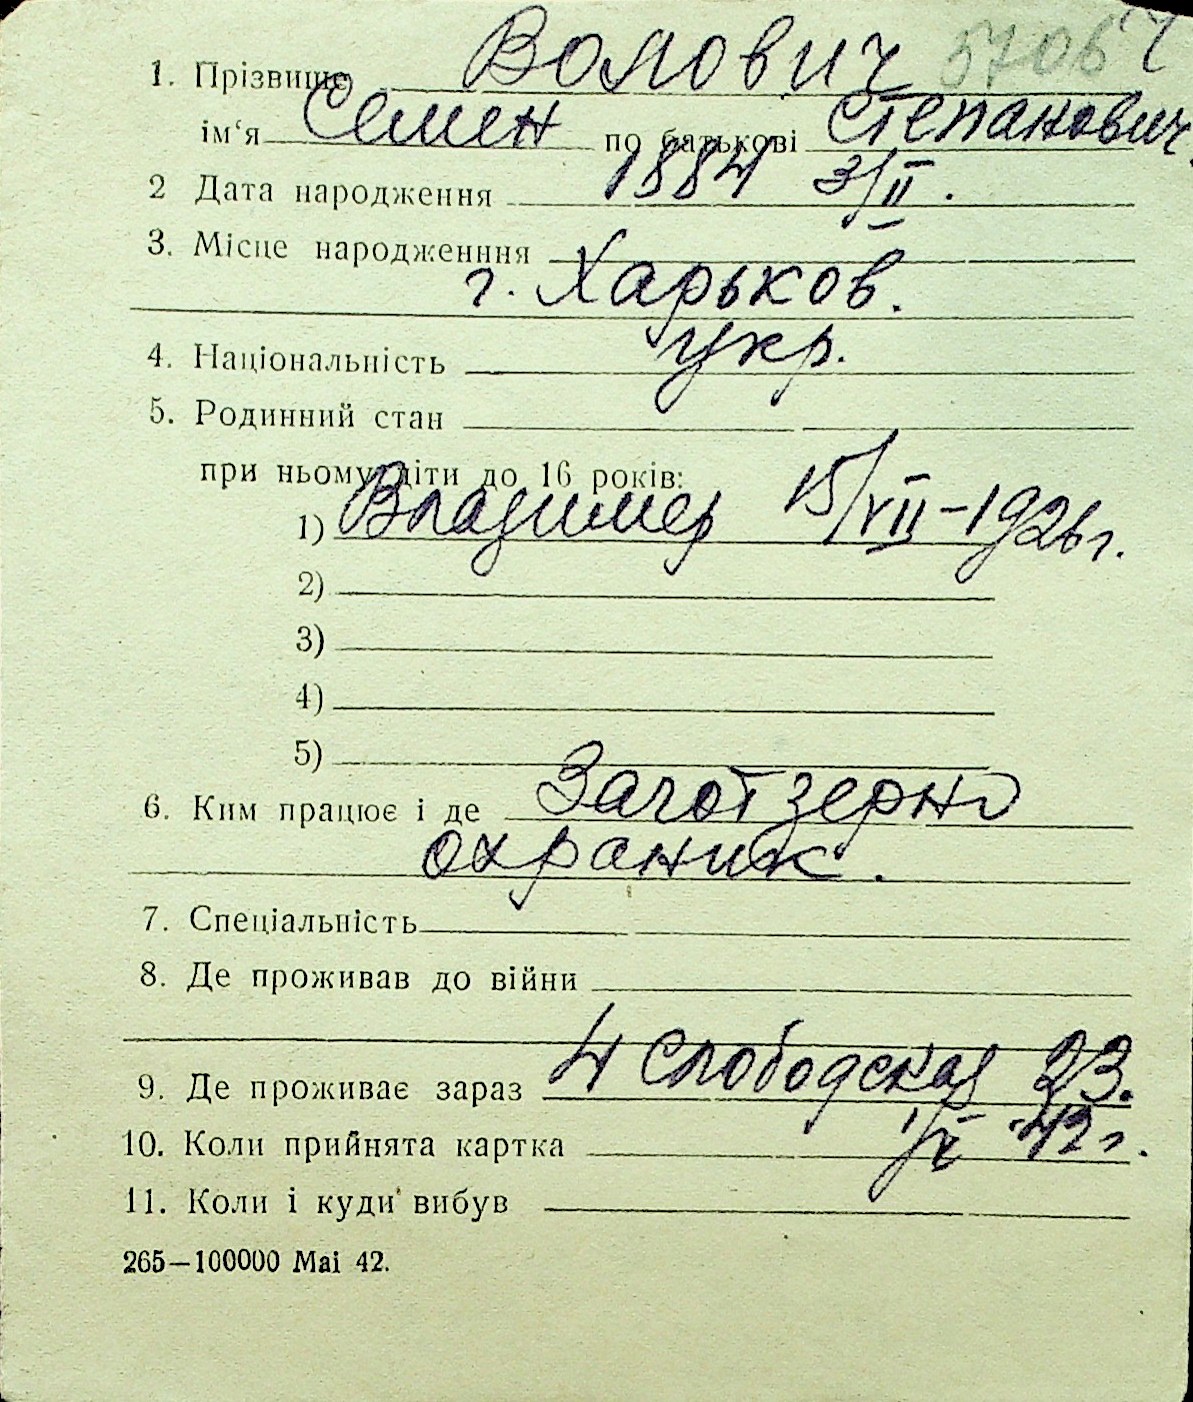 1. Прізвище Волович
ім‘я Семен по батькові Степанович
2 Дата народження 1884 3/II.
3. Місце народженння
г. Харьков.
4. Національність укр.
5. Родинний стан
при ньому діти до 16 років:
1) Владимер 15/VII-1926 г.
2)
3)
4)
5)
6. Ким працює і де Заготзерно
охраник.
7. Спеціальність
8. Де проживав до війни
9. Де проживає зараз 4 Слободская 23.
10. Коли прийнята картка 42 г.
11. Коли і куди вибув
265—100000 Mai 42.